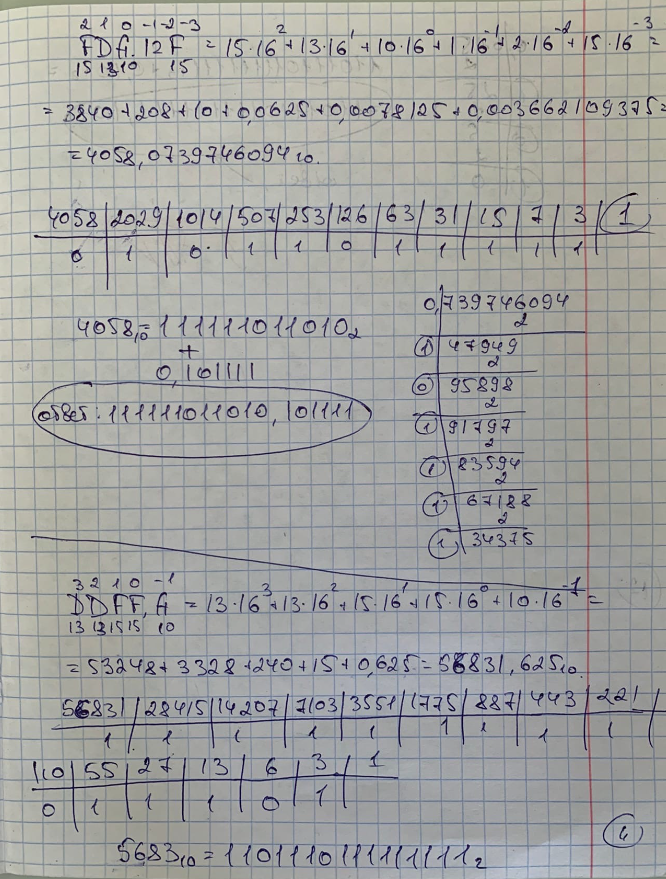 2 1 0 -1 -2 -3
FDA.12F = 15·16² + 13·16¹ + 10·16⁰ + 1·16⁻¹ + 2·16⁻² + 15·16⁻³ =
15 13 10 15
= 3840 + 208 + 10 + 0,0625 + 0,0078125 + 0,003662109375 =
= 4058,0739746094₁₀.
4058 | 2029 | 1014 | 507 | 253 | 126 | 63 | 31 | 15 | 7 | 3 | 1
0 | 1 | 0 | 1 | 1 | 0 | 1 | 1 | 1 | 1 | 1
4058₁₀ = 111111011010₂
+
0,101111
ответ: 111111011010,101111
0,739746094
2
1 | 47949
2
0 | 95898
2
1 | 91797
2
1 | 83594
2
1 | 67188
2
1 | 34375
3 2 1 0 -1
DDFF,A = 13·16³ + 13·16² + 15·16¹ + 15·16⁰ + 10·16⁻¹ =
13 13 15 15 10
= 53248 + 3328 + 240 + 15 + 0,625 = 56831,625₁₀.
56831 | 28415 | 14207 | 7103 | 3551 | 1775 | 887 | 443 | 221
1 | 1 | 1 | 1 | 1 | 1 | 1 | 1 | 1
110 | 55 | 27 | 13 | 6 | 3 | 1
0 | 1 | 1 | 1 | 0 | 1
5683₁₀ = 1101110111111111₂
4